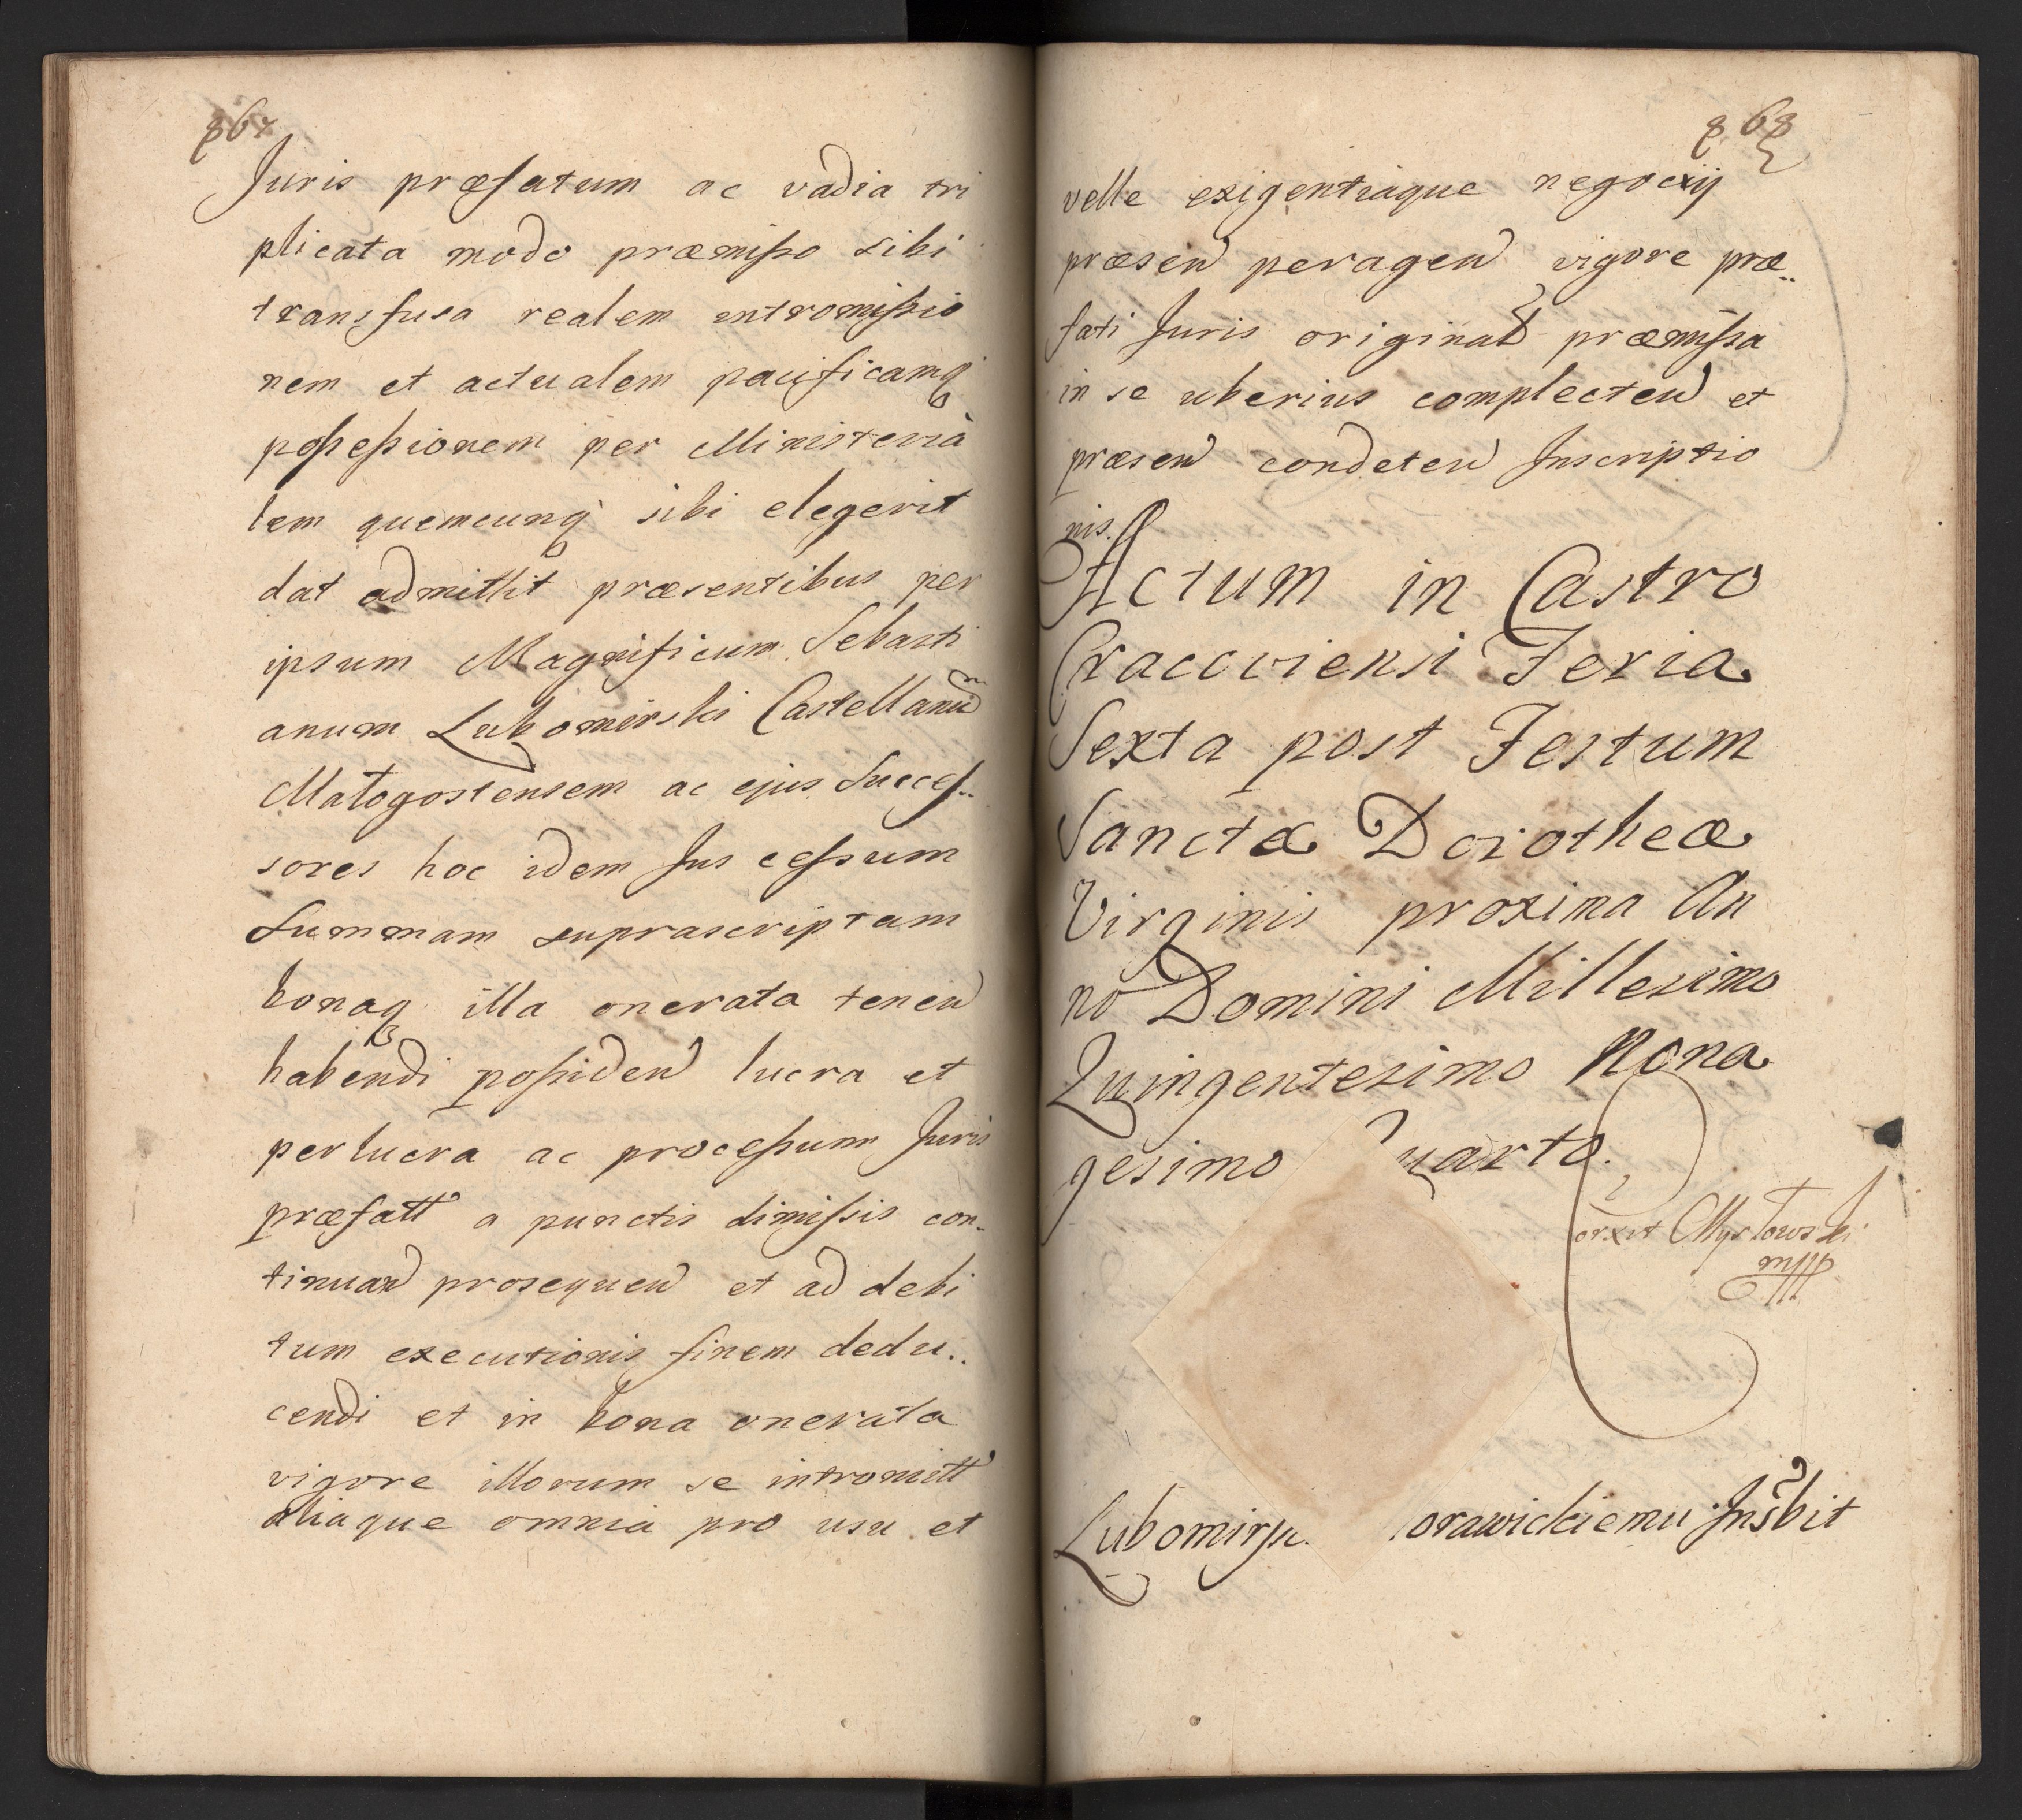 867
Juris præfatum ac vadia tri
plicata modo præmisso sibi
transfusa realem intromissio
nem et actualem pacificamq
possessionem per Ministeria
lem quemcunq sibi elegerit
dat admittit præsentibus per
ipsum Magnificum Sebasti
anum Lubomirski Castellanum
Małogostensem ac ejus Succes..
sores hoc idem Jus cessum
Summam suprascriptam
bonaq illa onerata tenen
habendi possiden lucra et
perlucra ac processum Juris
præfatt a punctis dimissis con..
tinuan prosequen et ad debi
tum executionis finem dedu..
cendi et in bona onerata
vigore illorum se intromitt
aliaque omnia pro usu et
868
velle exigentiaque negocxij
præsen peragen vigore præ..
fati Juris original præmissa
in se uberius complecten et
præsen condeten Inscriptio
nis.
Actum in Castro
Cracoviensi Feria
Sexta post Festum
Sanctæ Dorotheæ
Virginis proxima An
no Domini Millesimo
Quingentesimo Nona
gesimo Quarto.
Mysłowski
mpp
Lubomirski orawickiemu Insbit